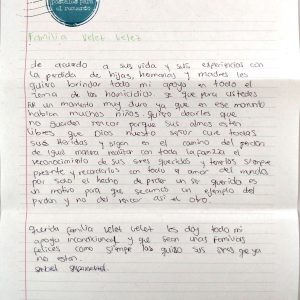 postales para
el recuerdo
Familia Velet Velez
de acuerdo a sus vida y sus experiencias con
la perdida de hijas, hermanas y madres les
quiero brindar todo mi apoyo en todo el
tema de los homicidios y que para ustedes
un momento muy duro ya que en ese momento
habian muchos niños quiero decirles que
no guarden rencor porque sus almas esten
libres que Dios nuestro señor cure todas
sus heridas y sigan en el camino del perdon
de igual manera realizar con toda la familia el
reconocimiento de sus seres queridos y tenerlos siempre
presente y recordarlos con todo el amor del mundo
por solo el hecho de perder un ser querido es
un motivo para que seamos un ejemplo del
perdon y no del rencor asi el otro.
querida familia velet velet les doy todo mi
apoyo incondicional y que sean unas familias
felices como siempre los quiso sus seres que ya
no estan.